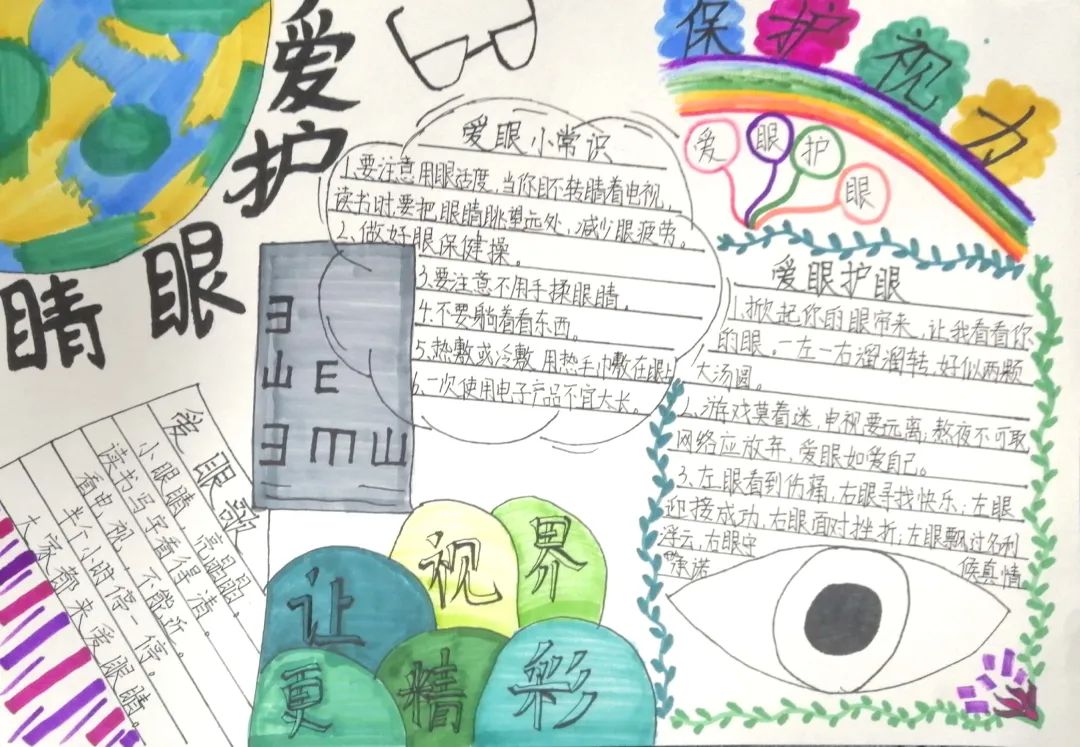 爱护
眼睛
保护视力
爱眼护眼
爱眼小常识
1.要注意用眼适度,当你目不转睛着电视,
读书时,要把眼睛眺望远处,减少眼疲劳。
2、做好眼保健操。
3.要注意不用手揉眼睛。
4.不要躺着看东西。
5.热敷或冷敷,用热手巾敷在眼上
6.一次使用电子产品不宜太长。
ヨ
山 E
ヨ m 山
爱眼护眼
1.掀起你的眼帘来,让我看看你
的眼。一左一右溜溜转,好似两颗
大汤圆。
2、游戏莫着迷,电视要远离;熬夜不可取
网络应放弃,爱眼如爱自己。
3.左眼看到伤痛,右眼寻找快乐;左眼
迎接成功,右眼面对挫折;左眼飘过名利
浮云,右眼守候真情
承诺
爱眼歌
小眼睛,亮晶晶,
读书写字看得清。
看电视,不能近。
半个小时停一停。
大家都来爱眼睛。
让视界
更精彩